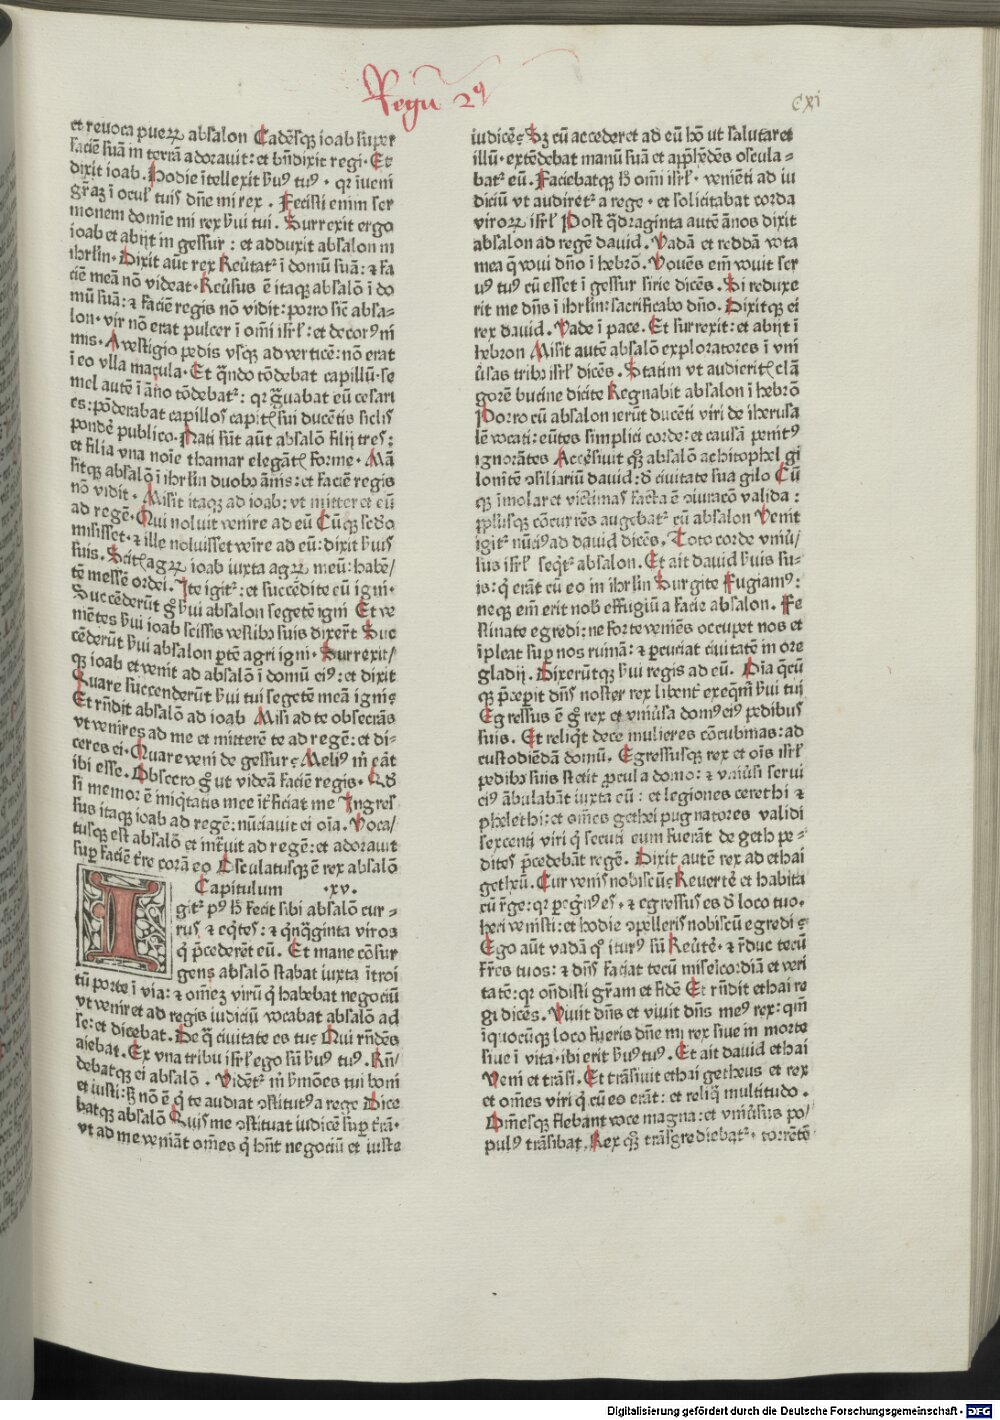 Regũ 2ꝰ
cxi
et reuoca pueꝝ absalon Cadẽsqꝫ ioab super
faciẽ suã in terrã adorauit: et bñdixit regi. Et
dixit ioab. Hodie ĩtellexit ẜuꝰ tuꝰ. qꝛ ĩueni
gr̃aꝫ ĩ ocul̕ tuis dñe mi rex. Fecisti enim ser
monem domĩe mi rex ẜui tui. Surrexit ergo
ioab et abijt in gessur: et adduxit absalon in
ihrl̃m. Dixit aũt rex Reũtat᷑ ĩ domũ suã: ⁊ fa
ciẽ meã nõ videat. Reũsus ẽ itaqꝫ absalõ ĩ do
mũ suã: ⁊ faciẽ regis nõ vidit: porro sic̃ absa-
lon. vir nõ erat pulcer ĩ om̃i isrl̕: et decorꝰ ni
mis. A vestigio pedis vsqꝫ ad verticẽ: nõ erat
ĩ eo vlla macula. Et qñdo tõdebat capillũ. se
mel autẽ ĩ ãno tõdebat᷑: qꝛ gͣuabat eũ cesari
es: põderabat capillos capit̕ sui ducẽtis siclis
pondẽ publico. Nati sũt aũt absalõ filij tres:
et filia vna noĩe thamar elegãt̕ forme. Mã
sitqꝫ absalõ ĩ ihrl̃m duobꝫ ãnis: et faciẽ regis
nõ vidit. Misit itaqꝫ ad ioab: vt mitteret eũ
ad regẽ. Qui noluit venire ad eũ Cũqꝫ sc̃do
misisset. ⁊ ille noluisset veĩre ad eũ: dixit ẜuis
suis. Scit̕ agꝝ ioab iuxta agꝝ meũ: habẽ/
tẽ messẽ ordei. Ite igit᷑: et succẽdite eũ igni.
Succẽderũt gͦ ẜui absalon segetẽ igni Et ve
mẽtes ẜui ioab scissis vestibꝫ suis dixer̃t Suc
cẽderũt ẜui absalon ꝑtẽ agri igni. Surrexit/
qꝫ ioab et venit ad absalõ ĩ domũ eiꝰ: et dixit
Quare succenderũt ẜui tui segetẽ meã igni?
Et rñdit absalõ ad ioab Misi ad te obsecrãs
vt venires ad me et mitterẽ te ad regẽ: et di-
ceres ei. Quare veni de gessur? Meliꝰ m̃ eãt
ibi esse. Obsecro gͦ ut videã faciẽ regis. Qđ
si memor ẽ iniq̃tatis mee ĩt̃ficiat me Ingres
sus itaqꝫ ioab ad regẽ: nũciauit ei oĩa. Voca/
tusqꝫ est absalõ et intͣuit ad regẽ: et adorauit
suꝑ faciẽ t̃re corã eo Osculatusqꝫ ẽ rex absalõ
Capitulum .xv.
Igit᷑ pꝰ h̃ fecit sibi absalõ cur-
rus̃ ⁊ eq̃tes: ⁊ qͥnqͣginta viros
qͥ p̃cederẽt eũ. Et mane cõsur
gens absalõ stabat iuxta ĩtroi
tũ porte ĩ via: ⁊ om̃eꝫ virũ qͥ habebat negociũ
vt veniret ad regis iudiciũ vocabat absalõ ad
se: et dicebat. De qͣ ciuitate es tu? Qui rñdẽs
aiebat. Ex vna tribu isrl̕ ego sũ ẜuꝰ tuꝰ. Rñ/
debatqꝫ ei absalõ. Vidẽt᷑ m̃ ẜmões tui boni
et iusti: sꝫ nõ ẽ qͥ te audiat ꝯstitutꝰ a rege Dice
batqꝫ absalõ Quis me ꝯstituat iudicẽ suꝑ t̃rã.
vt ad me veniãt om̃es qͥ hñt negociũ et iuste
iudicẽ? Sꝫ cũ accederet ad eũ hõ ut salutaret
illũ. extẽdebat manũ suã et appͪhẽdẽs oscula-
bat᷑ eũ. Faciebatqꝫ h̃ om̃i isrl̕. veniẽti ad iu
diciũ vt audiret᷑ a rege. et solicitabat corda
viroꝝ isrl̕ Post qͣdraginta autẽ ãnos dixit
absalon ad regẽ dauid. Vadã et reddã vota
mea q̃ voui dño ĩ hebrõ. Vouẽs em̃ vouit ser
uꝰ tuꝰ cũ esset ĩ gessur sirie dicẽs. Si reduxe
rit me dñs ĩ ihrl̃m: sacrificabo dño. Dixitqꝫ ei
rex dauid. Vade ĩ pace. Et surrexit: et abijt ĩ
hebron Misit autẽ absalõ exploratores ĩ vni
ũsas tribꝫ isrl̕ dicẽs. Statim vt audierit̕ clã
gorẽ bucine dicite Regnabit absalon ĩ hebrõ
Porro cũ absalon ierũt ducẽti viri de iherusa
lẽ vocati: eũtes simplici corde: et causã penitꝰ
ignorãtes Accẽsiuit qꝫ absalõ achitophel gi
lonitẽ ꝯsiliariũ dauid: đ ciuitate sua gilo Cũ
qꝫ ĩmolaret victimas facta ẽ ꝯiuracõ valida:
pp̃lusqꝫ cõcurrẽs augebat᷑ cũ absalon Venit
igit᷑ nũciꝰ ad dauid dicẽs. Toto corde vniũ/
sus isrl̕ seqͥt᷑ absalon. Et ait dauid ẜuis su-
is: qͥ erãt cũ eo in ihrl̃m Surgite Fugiamꝰ:
neqꝫ em̃ erit nob̕ effugiũ a facie absalon. Fe
stinate egredi: ne forte veniẽs occupet nos et
ĩpleat suꝑ nos ruinã: ⁊ ꝑcuciat ciuitatẽ in ore
gladij. Dixerũtqꝫ ẜui regis ad eũ. Oĩa qͣcũ
qꝫ p̃ceꝑit dñs noster rex libent̕ exeqm̃ ẜui tui
Egressus ẽ gͦ rex et vniũsa domꝰ eiꝰ pedibus
suis. Et reliqͥt decẽ mulieres cõcubinas: ad
custodiẽdã domũ. Egressusqꝫ rex et oĩs isrl̕
pedibꝫ suis stetit ꝓcul a domo: ⁊ vniũsi serui
eiꝰ ãbulabãt iuxta eũ: et legiones cerethi ⁊
phelethi: et om̃es gethei pugnatores validi
sexcenti viri qͥ secuti eum fuerãt de geth pe-
dites p̃cedebãt regẽ. Dixit autẽ rex ad ethai
getheũ. Cur venis nobiscũ? Reuerte᷑ et habita
cũ r̃ge: qꝛ ꝑegͥnꝰ es. ⁊ egressus es đ loco tuo.
heri venisti: et hodie ꝯpelleris nobiscũ egredi?
Ego aũt vadã qͦ iturꝰ sũ Reũte᷑. ⁊ r̃duc tecũ
fr̃es tuos: ⁊ dñs faciat tecũ misericordiã et veri
tatẽ: qꝛ oñdisti gr̃am et fidẽ Et rñdit ethai re
gi dicẽs. Viuit dñs et viuit dñs meꝰ rex: qm̃
ĩ quocũqꝫ loco fueris dñe mi rex siue in morte
siue ĩ vita. ibi erit ẜuꝰ tuꝰ. Et ait dauid ethai
Veni et trãsi. Et trãsiuit ethai getheus et rex
et om̃es viri qͥ cũ eo erãt: et reliqͣ multitudo.
Om̃esqꝫ flebant voce magna: et vniũsus po/
pulꝰ trãsibat. Rex qꝫ trãsgrediebat᷑. torrẽtẽ
Digitalisierung gefördert durch die Deutsche Forschungsgemeinschaft - DFG